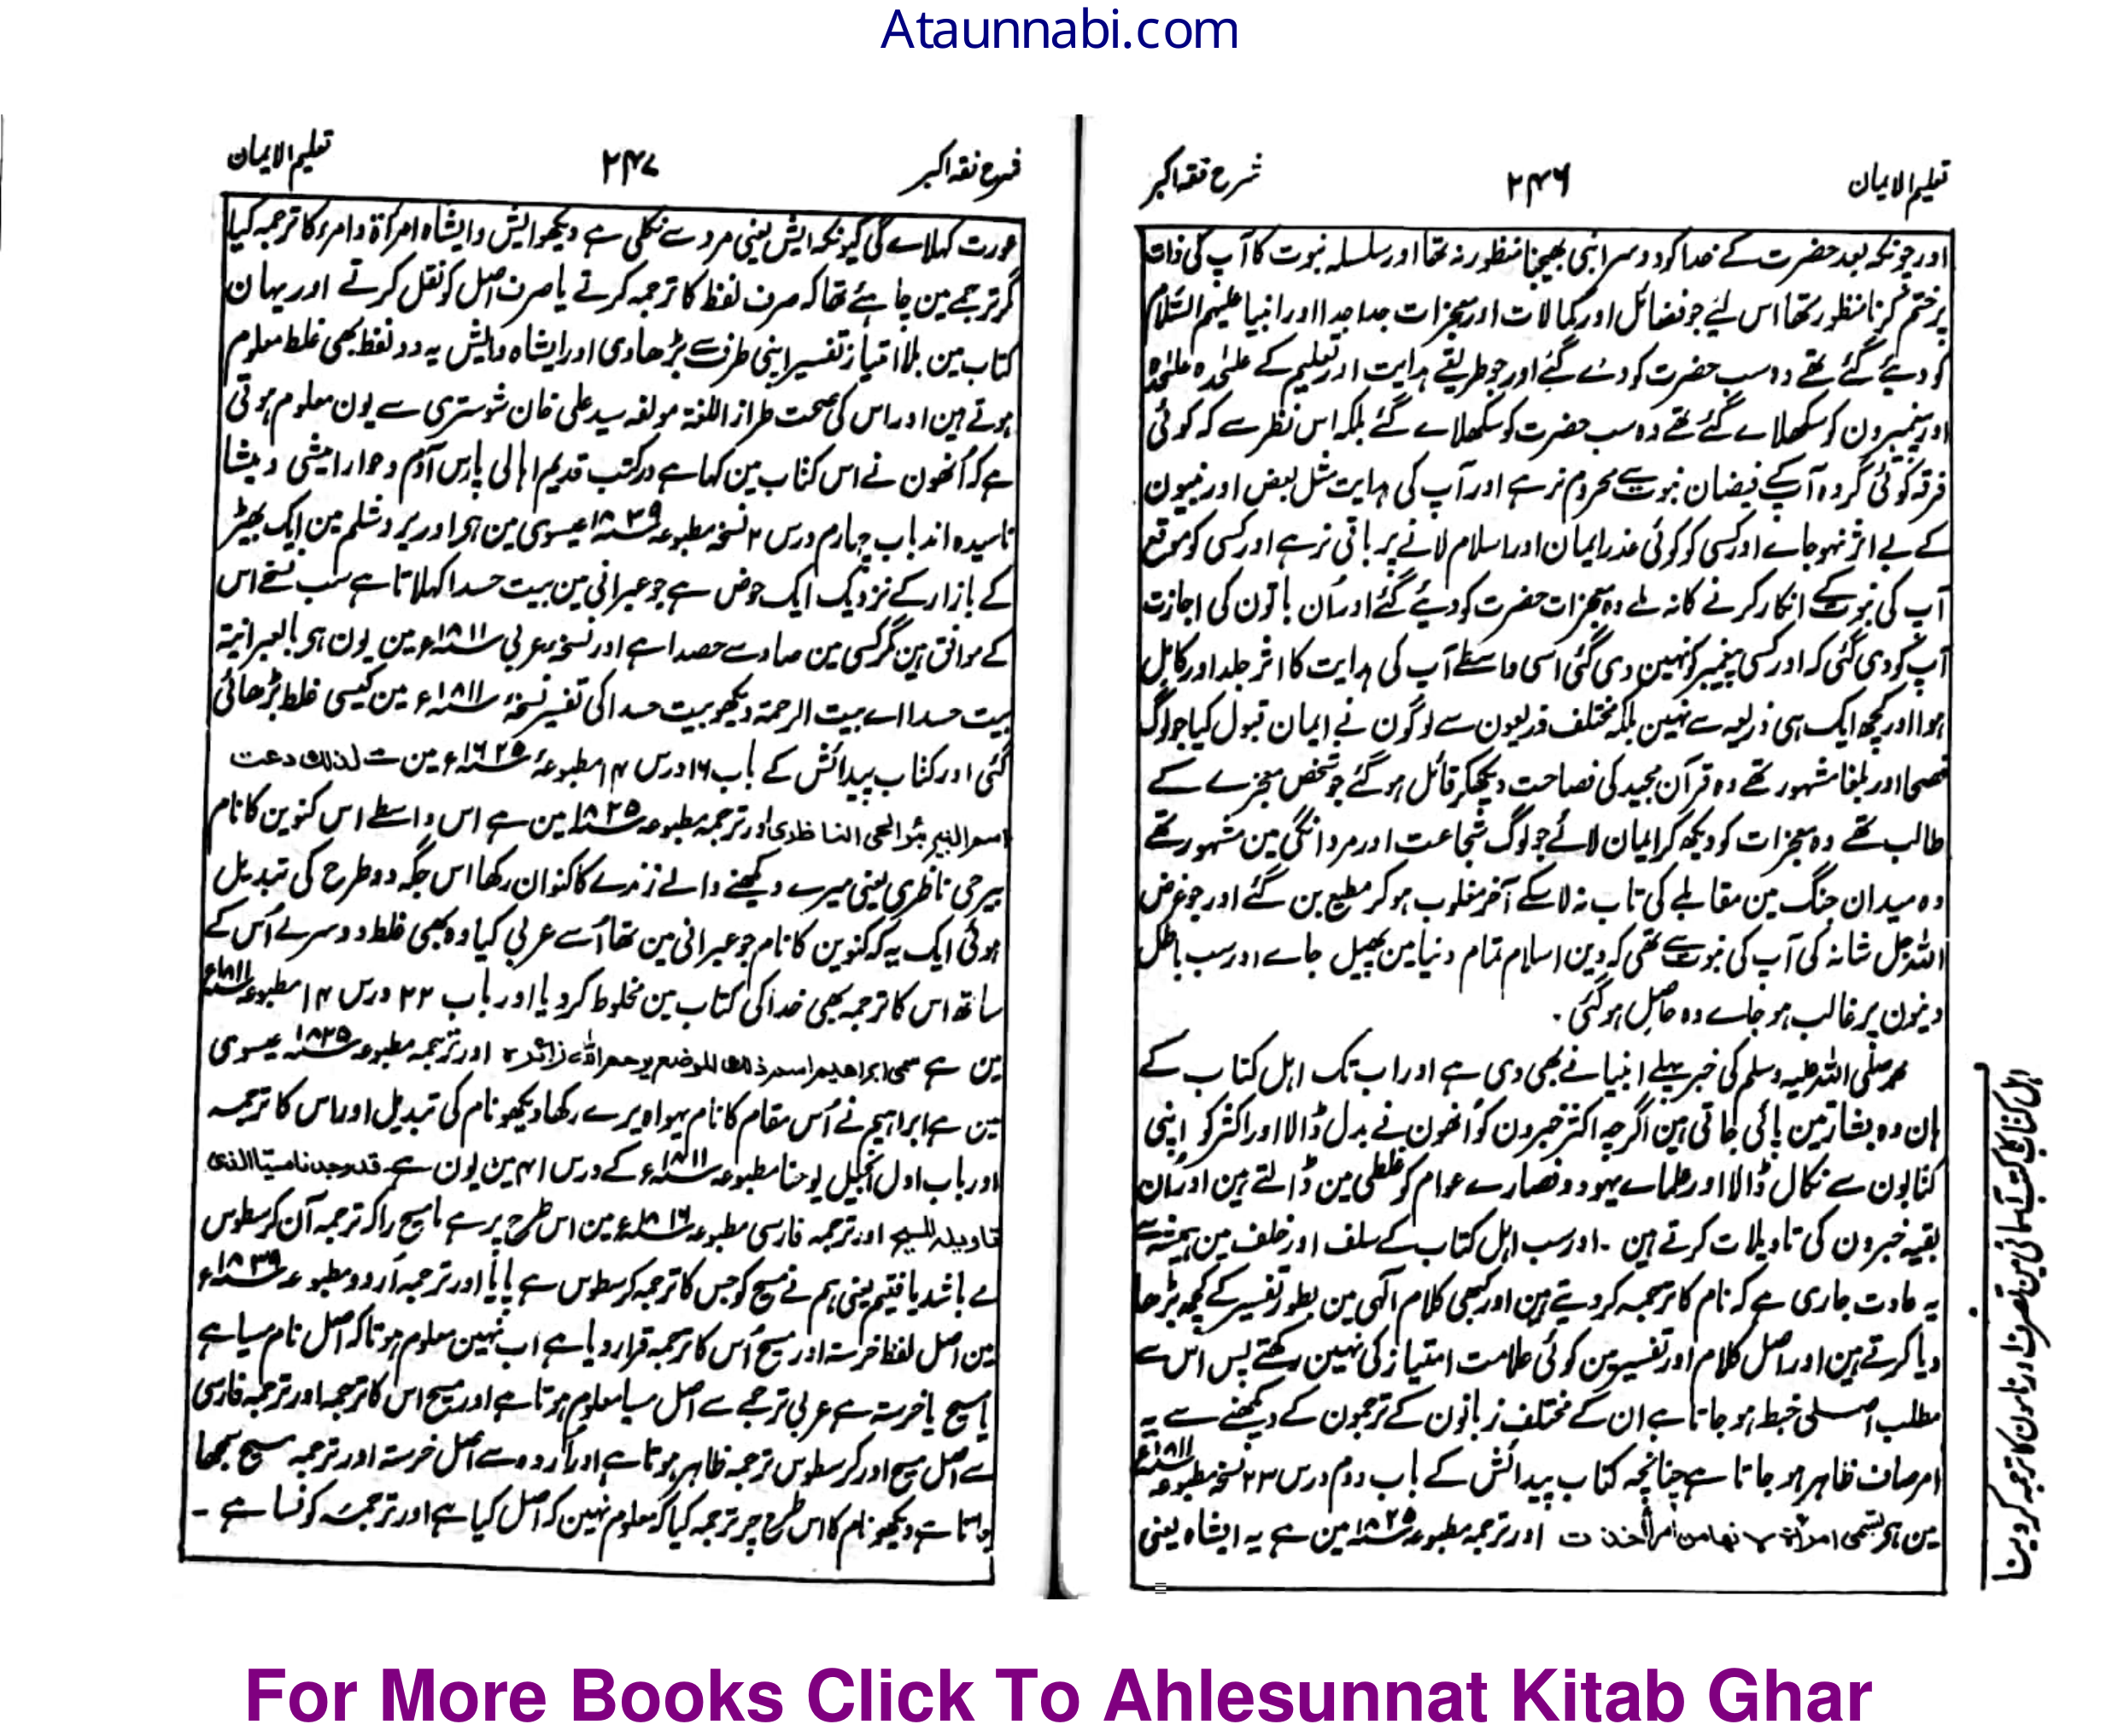 Ataunnabi.com
تعلیم الایمان ۲۴۶ شرح فقہ اکبر
اور چونکہ بعد حضرت کے خدا کو دوسرا نبی بھیجنا منظور نہ تھا اور سلسلہ نبوت کا آپ کی ذات
پر ختم کرنا منظور تھا اس لیے جو فضائل اور کمالات اور معجزات جدا جدا اور انبیا علیہم السّلام
کو دیے گئے تھے وہ سب حضرت کو دئے گئے اور جو طریقے ہدایت اور تعلیم کے علٰحدہ علٰحدہ
اور پیغمبرون کو سکھلاے گئے تھے وہ سب حضرت کو سکھلاے گئے بلکہ اس نظر سے کہ کوئی
فرقہ کوئی گروہ آپ کے فیضان نبوت سے محروم نرہے اور آپ کی ہدایت مثل بعض اور نبیون
کے بے اثر نہوجاے اور کسی کو کوئی عذر ایمان اور اسلام لانے پر باقی نرہے اور کسی کو موقع
آپ کی نبوت کے انکار کرنے کا نہ ملے وہ معجزات حضرت کو دیئے گئے اور اُن باتون کی اجازت
آپ کو دی گئی کہ اور کسی پیغمبر کو نہین دی گئی اسی واسطے آپ کی ہدایت کا اثر جلد اور کامل
ہوا اور کچھ ایک ہی ذریعہ سے نہین بلکہ مختلف ذریعون سے لوگون نے ایمان قبول کیا جو لوگ
فصحا اور بلغا مشہور تھے وہ قرآن مجید کی فصاحت دیکھکر قائل ہو گئے جو شخص معجزے کے
طالب تھے وہ معجزات کو دیکھ کر ایمان لائے جو لوگ شجاعت اور مردانگی مین مشہور تھے
وہ میدان جنگ مین مقابلے کی تاب نہ لا سکے آخر مغلوب ہو کر مطیع بن گئے اور جو غرض
اللہ جل شانہ کی آپ کی نبوت سے تھی کہ دین اسلام تمام دنیا مین پھیل جاے اور سب باطل
دینون پر غالب ہو جاے وہ حاصل ہو گئی۔
محمد صلی اللہ علیہ وسلم کی خبر پہلے انبیا نے بھی دی ہے اور اب تک اہل کتاب کے
ہان وہ بشارتین پائی جاتی ہین اگرچہ اکثر خبرون کو اُنھون نے بدل ڈالا اور اکثر کو اپنی
کتابون سے نکال ڈالا اور علماے یہود و نصارے عوام کو غلطی مین ڈالتے ہین اور اُن
بقیہ خبرون کی تاویلات کرتے ہین ۔ اور سب اہل کتاب کے سلف اور خلف مین ہمیشہ سے
یہ عادت جاری ہے کہ نام کا ترجمہ کر دیتے ہین اور کبھی کلام الٰہی مین بطور تفسیر کے کچھ بڑھا
دیا کرتے ہین اور اصل کلام اور تفسیر مین کوئی علامت امتیاز کی نہین رکھتے پس اس سے
مطلب اصلی خبط ہو جاتا ہے ان کے مختلف زبانون کے ترجمون کے دیکھنے سے یہ
امر صاف ظاہر ہو جاتا ہے چنانچہ کتاب پیدائش کے باب دوم درس ۲۳ نسخہ مطبوعہ ۱۸۱۱ء
مین ہے تسمی امرأة لانها من امرأ اخذت اور ترجمہ مطبوعہ ۱۸۲۵ مین ہے یہ ایشاہ یعنی
اہل کتاب کا کتب آسمانی مین تصرف اور نامون کا ترجمہ کر دینا
شرح فقہ اکبر ۲۴۷ تعلیم الایمان
عورت کہلاے گی کیونکہ ایش یعنی مرد سے نکلی ہے دیکھو ایش و ایشاہ امراۃ و امرء کا ترجمہ کیا
گر ترجمے مین چاہئے تھا کہ صرف لفظ کا ترجمہ کرتے یا صرف اصل کو نقل کرتے اور یہان
کتاب مین بلا امتیاز تفسیر اپنی طرف سے بڑھادی اور ایشاہ وایش یہ دو لفظ بھی غلط معلوم
ہوتے ہین اور اس کی صحت طراز اللغۃ مولفہ سید علی خان شوستری سے یون معلوم ہوتی
ہے کہ اُنھون نے اس کتاب مین کہا ہے در کتب قدیم اہالی پارس آدم و حوا را میشی و میشا
نامیده اند باب چہارم درس ۲ نسخہ مطبوعہ ۱۸۳۹ عیسوی مین ہے اور یروشلم مین ایک بھیڑ
کے بازار کے نزدیک ایک حوض ہے جو عبرانی مین بیت حسدا کہلاتا ہے سب نسخے اس
کے موافق ہین مگر کسی مین صاد سے حصدا ہے اور نسخہ عربی ۱۸۱۱ء مین یون ہے بالعبرانیة
بیت حسدا اے بیت الرحمة دیکھو بیت حسدا کی تفسیر نسخۂ ۱۸۱۱ء مین کیسی غلط بڑھائی
گئی اور کتاب پیدائش کے باب ۱۶ درس ۱۴ مطبوعۂ ۱۶۲۵ء مین ہے لذلك دعت
اسم البیر بئر الحی الناظری اور ترجمہ مطبوعہ ۱۸۲۵ مین ہے اس واسطے اس کنوین کا نام
بیر حی ناظری یعنی میرے دیکھنے والے زندے کا کنوان رکھا اس جگہ دو طرح کی تبدیل
ہوئی ایک یہ کہ کنوین کا نام جو عبرانی مین تھا اُسے عربی کیا وہ بھی غلط دوسرے اُس کے
ساتھ اس کا ترجمہ بھی خدا کی کتاب مین مخلوط کر دیا اور باب ۲۲ درس ۱۴ مطبوعہ ۱۸۱۱ء
مین ہے سمی ابراهیم اسم ذلك الموضع یرحم اللہ زائرہ اور ترجمہ مطبوعہ ۱۸۲۵ عیسوی
مین ہے ابراہیم نے اُس مقام کا نام یہواہ یرے رکھا دیکھو نام کی تبدیل اور اس کا ترجمہ
اور باب اول انجیل یوحنا مطبوعہ ۱۸۱۱ء کے درس ۴۱ مین یون ہے قد وجدنا مسیّا الذی
تاویلہ المسیح اور ترجمہ فارسی مطبوعہ ۱۸۱۶ء مین اس طرح پر ہے ما مسیح را کہ ترجمہ آن کرسطوس
مے باشد یافتیم یعنی ہم نے مسیح کو جس کا ترجمہ کرسطوس ہے پایا اور ترجمہ اُردو مطبوعہ ۱۸۳۹ء
مین اصل لفظ خرستہ اور مسیح اُس کا ترجمہ قرار دیا ہے اب نہین معلوم ہوتا کہ اصل نام مسیا ہے
یا مسیح یا خرستہ ہے عربی ترجمے سے اصل مسیا معلوم ہوتا ہے اور مسیح اس کا ترجمہ اور ترجمہ فارسی
سے اصل مسیح اور کرسطوس ترجمہ ظاہر ہوتا ہے اور اُردو سے اصل خرستہ اور ترجمہ مسیح سمجھا
جاتا ہے دیکھو نام کا اس طرح پر ترجمہ کیا کہ معلوم نہین کہ اصل کیا ہے اور ترجمہ کونسا ہے ۔
For More Books Click To Ahlesunnat Kitab Ghar